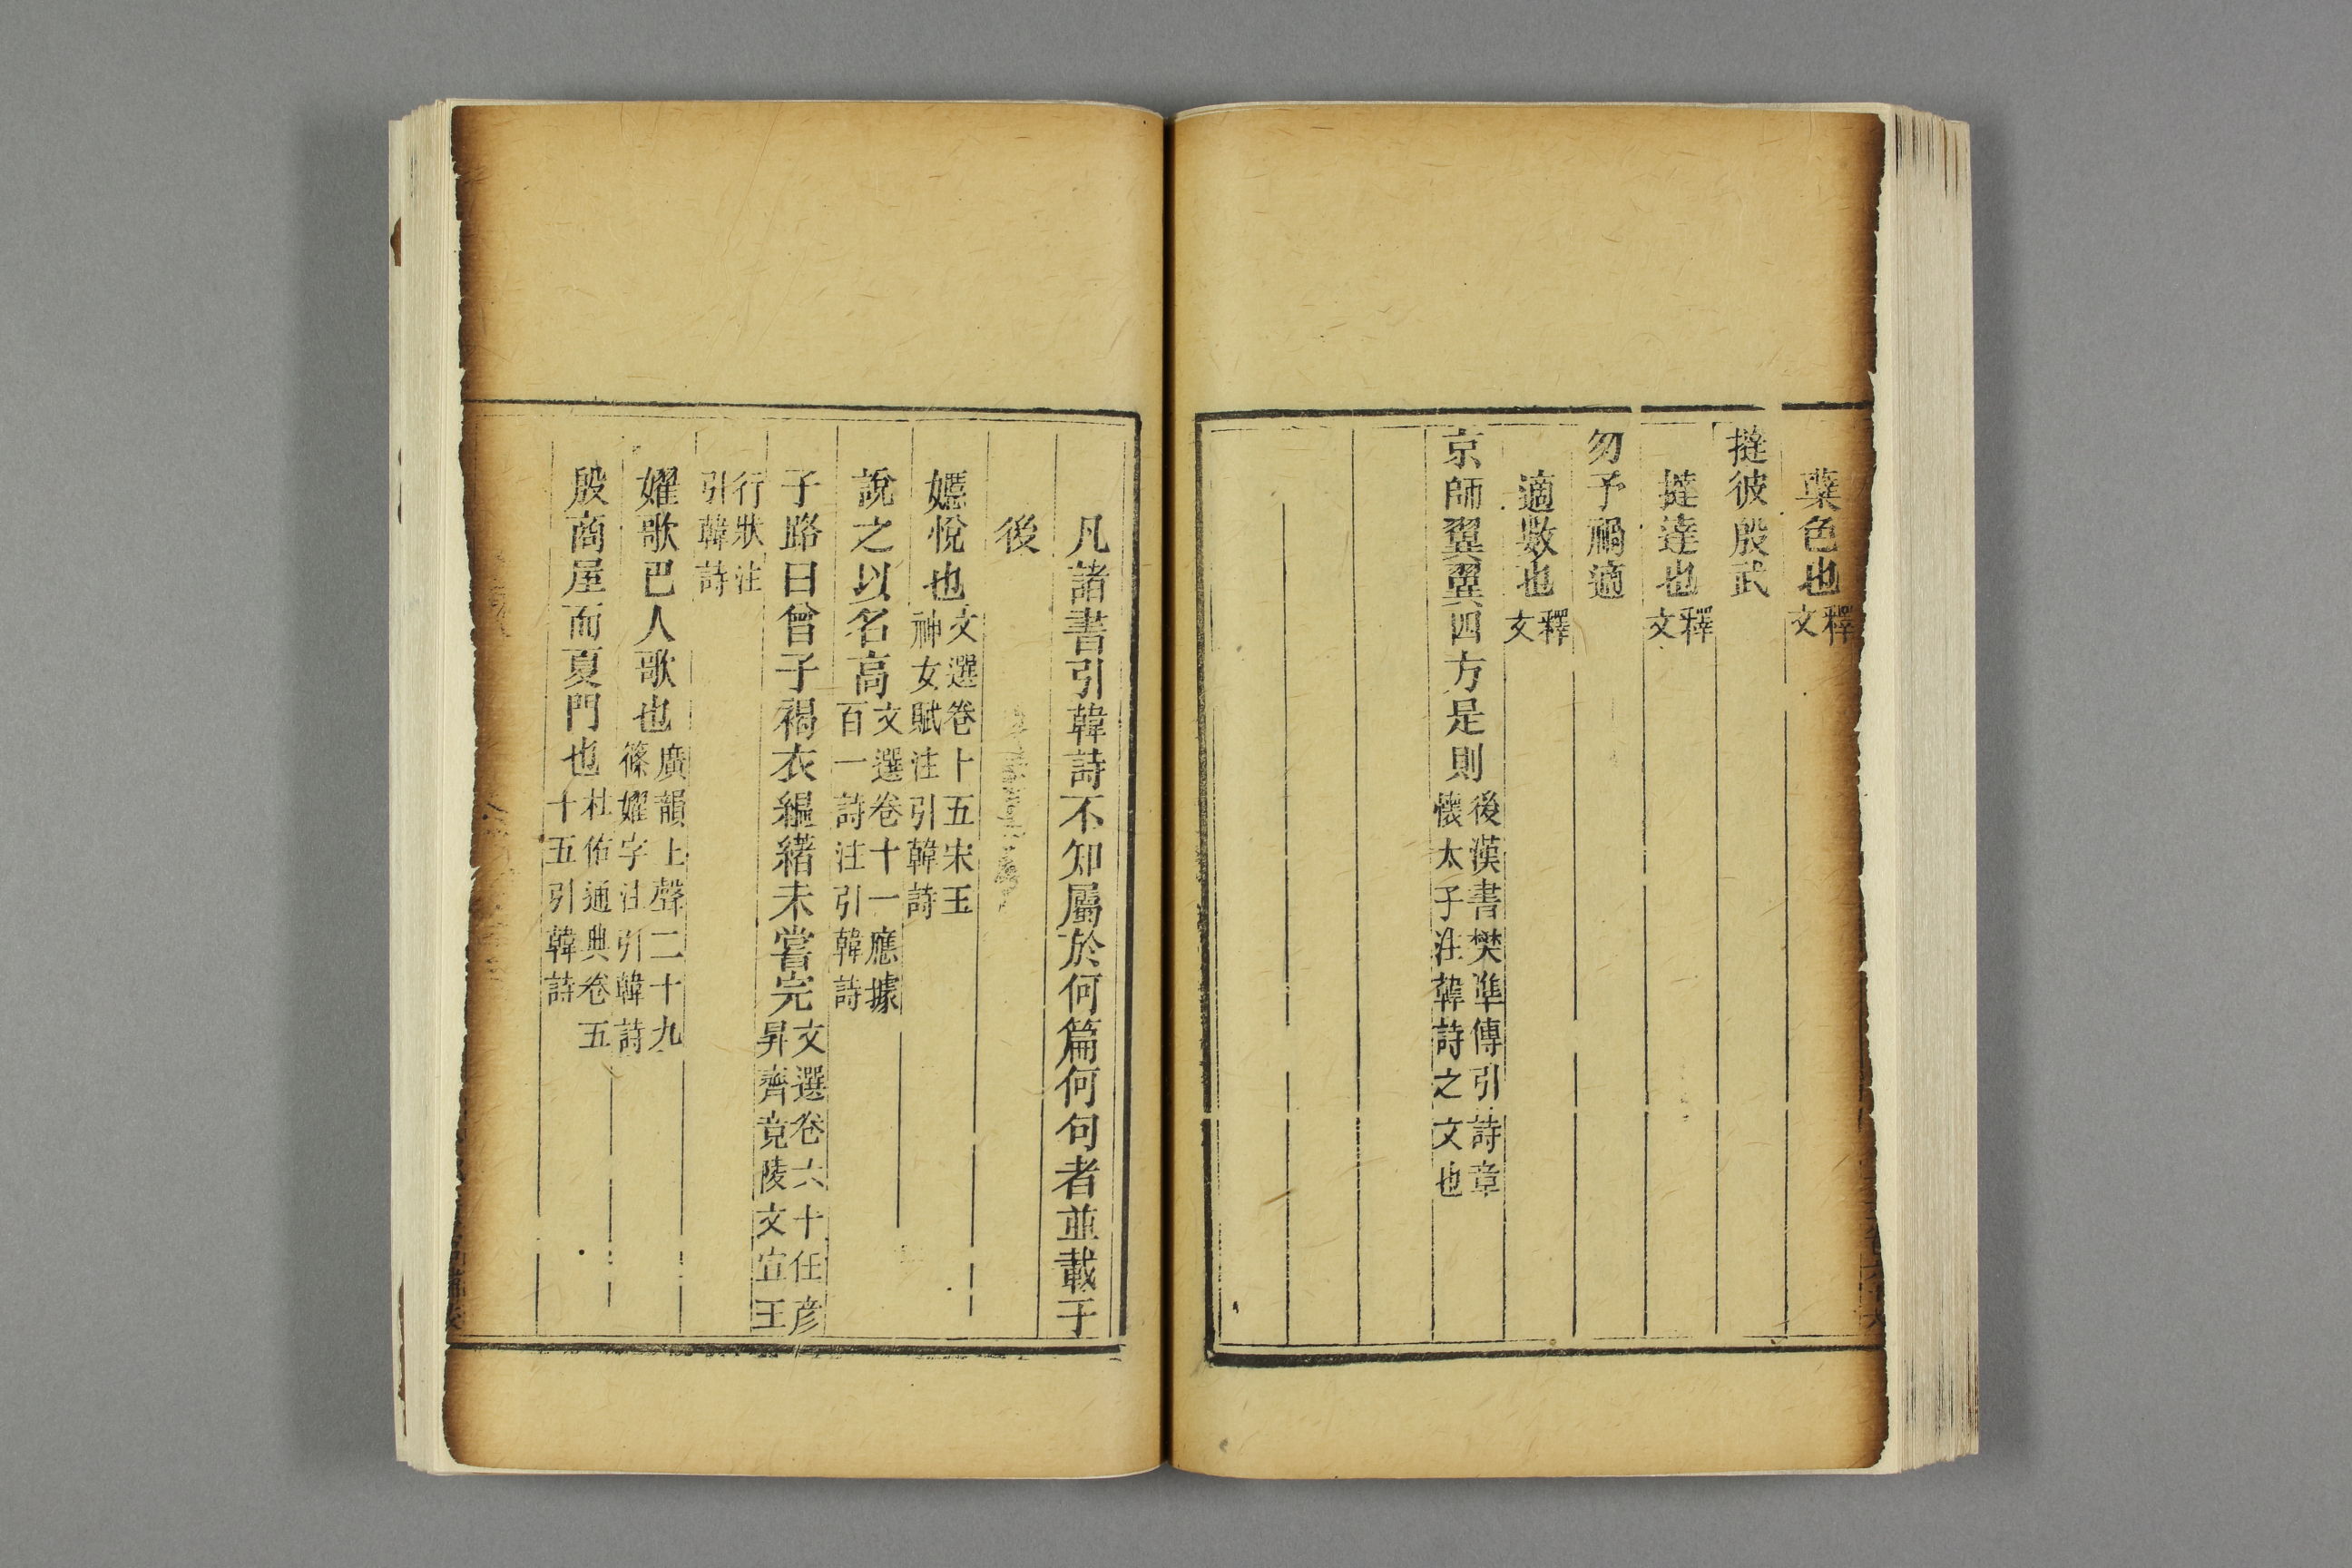 蘖色也釋文
撻彼殷武
撻達也釋文
勿予禍適
適數也釋文
京師翼翼四方是則後漢書樊準傳引詩章
懷太子注韓詩之文也
凡諸書引韓詩不知屬於何篇何句者並載于
後
嫕悅也文選卷十五宋玉
神女賦注引韓詩
說之以名高文選卷十一應據
百一詩注引韓詩
子路曰曾子褐衣縕緒未嘗完文選卷六十任彦
昇齊竟陵文宣王
行狀注
引韓詩
嬥歌巴人歌也廣韻上聲二十九
篠嬥字注引韓詩
殷商屋而夏門也杜佑通典卷五
十五引韓詩